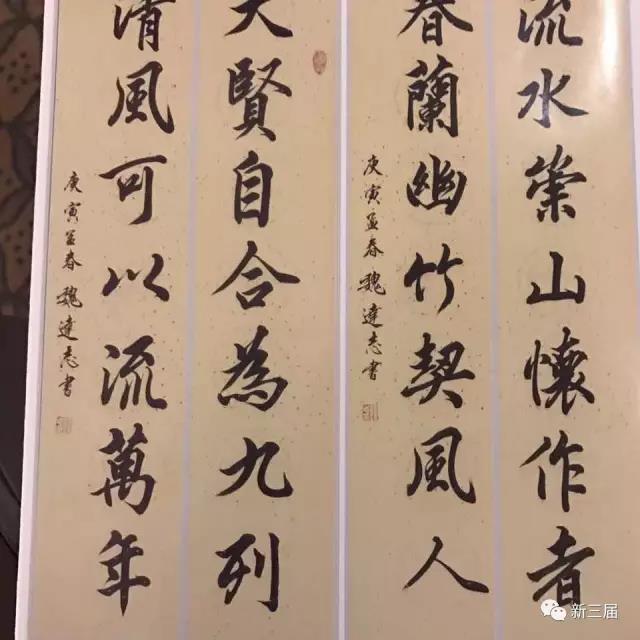 流水崇山懷作者
春蘭幽竹契風人
庚寅孟春 魏達志書
大賢自合為九列
清風可以流萬年
庚寅孟春 魏達志書
新三届